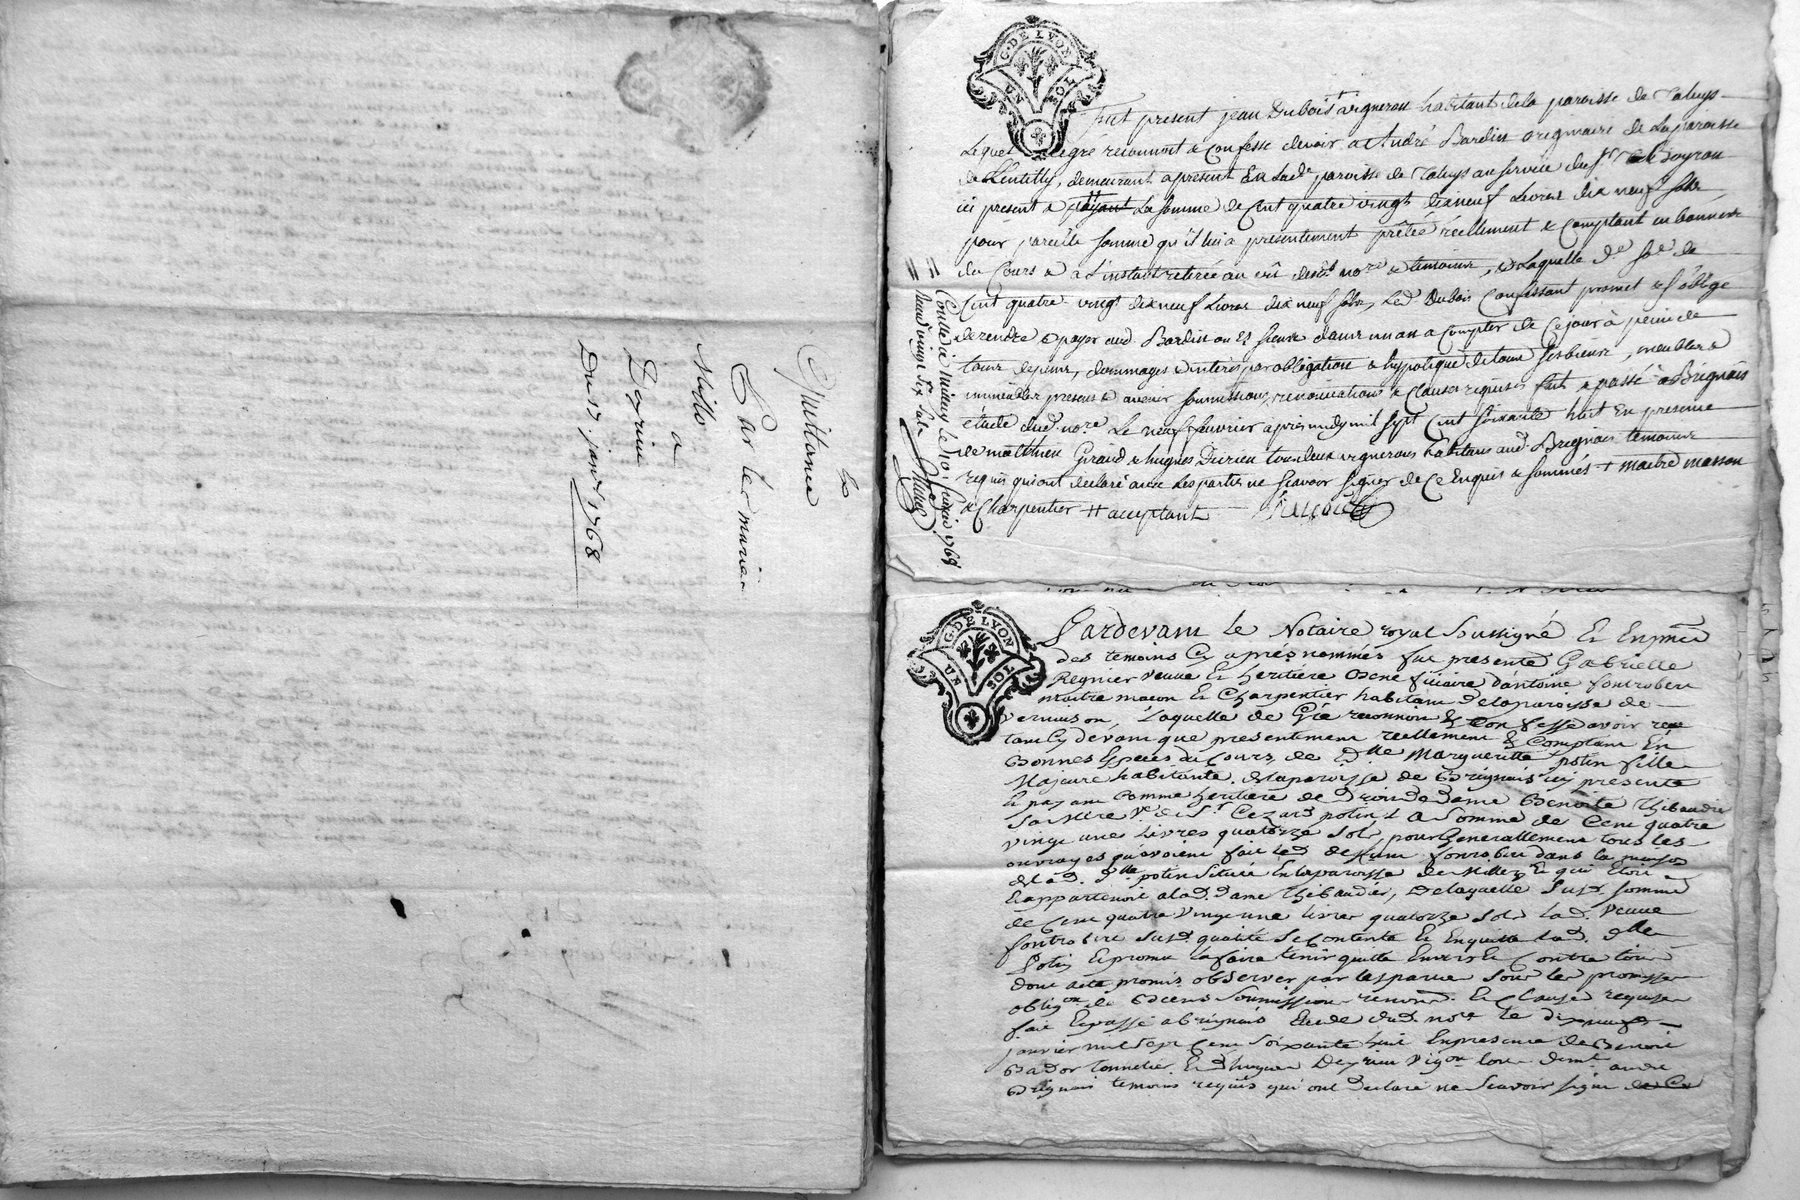 Quittance
Par les mariés
Mille
a
Deyrieu
Du 17 janv 1768
G. DE LYON
UN SOL
fut present jean Dubois vigneron habitant de la paroisse de Taluys
Lequel de gré reconnoit & Confesse devoir a André Bardin originaire de La paroisse
de Lentilly, demeurant apresent En Lad. paroisse de Taluys au service du Sr
ici present a payant La somme de Cent quatre vingt dixneuf Livres dix neuf sols
pour pareille somme qu'il lui a presentement prêtée réellement & Comptant en bonnes
du Cours & a L'instant retirée au vû desd. nore & temoins, & Laquelle de se de
Cent quatre vingt dixneuf Livres dix neuf sols, Led. Dubois Confessant promet & s'oblige
de rendre & payer aud. Bardin ou ès siens dans un an a Compter de Ce jour à peine de
tous depens, dommages & intérêts par obligation & hypotéque de tous ses biens, meubles &
immeubles presens & avenir soumissions, renonciations & Clauses requises fait & passé a Brignais
étude dud. nore. Le neuf fevrier après midy mil sept Cent soixante huit En presence
de matthieu Giraud & hugues Deirieu tous deux vignerons habitans aud. Brignais temoins
requis qui ont declaré avec Les parties ne sçavoir signer de Ce Enquis & sommés + maitre masson
& Charpentier ++ acceptant
Conllé a Millery le 10 fevrier 1768
Reçu vingt six sols
G. DE LYON
UN SOL
Pardevant Le Notaire royal Soussigné Et En pnce
des temoins Cy après nommés fut presente Gabrielle
Regnier veuve Et heritiere Beneficiaire d'antoine fontrobert
maitre macon Et Charpentier habitant de la paroisse de
vernaison, Laquelle de Gré reconnoit & Confesse avoir reçu
tant Cy devant que presentement reellement & Comptant En
Bonnes Especes du Cours, de Dlle Margueritte potin fille
Majeure habitante de la paroisse de Brignais icy presente
Et payant Comme heritiere de Droit de dame Benoite Thibaudier
Sa Mere Ve de Sr Cezard potin La Somme de Cent quatre
vingt une Livres quatorze Sols, pour Generallement tous les
ouvrages qu'avoient fait Led. deffunt fontrobert dans la maison
de lad. Dlle potin Située En la paroisse de Millery Et qui Etoit
Et appartenoit a lad. Dame Thibaudier, De laquelle Susd. Somme
de Cent quatre vingt une livres quatorze Sols Lad. Veuve
fontrobert Susd. qualité Se Contente Et En quitte Lad. Dlle
Potin Et promet la faire tenir quitte Envers Et Contre tous
Dont acte promis observer par les parties Sous les promesses
obligon de Biens Soumissions renond. Et Clauses requises
fait Et passé a Brignais Etude dud. nore Le dix
janvier mil Sept Cent Soixante huit En presence de Benoit
Bador Tonnelier Et hugues Deyrieu vigon tous demt. audit
Brignais temoins requis qui ont Declaré ne Scavoir Signer